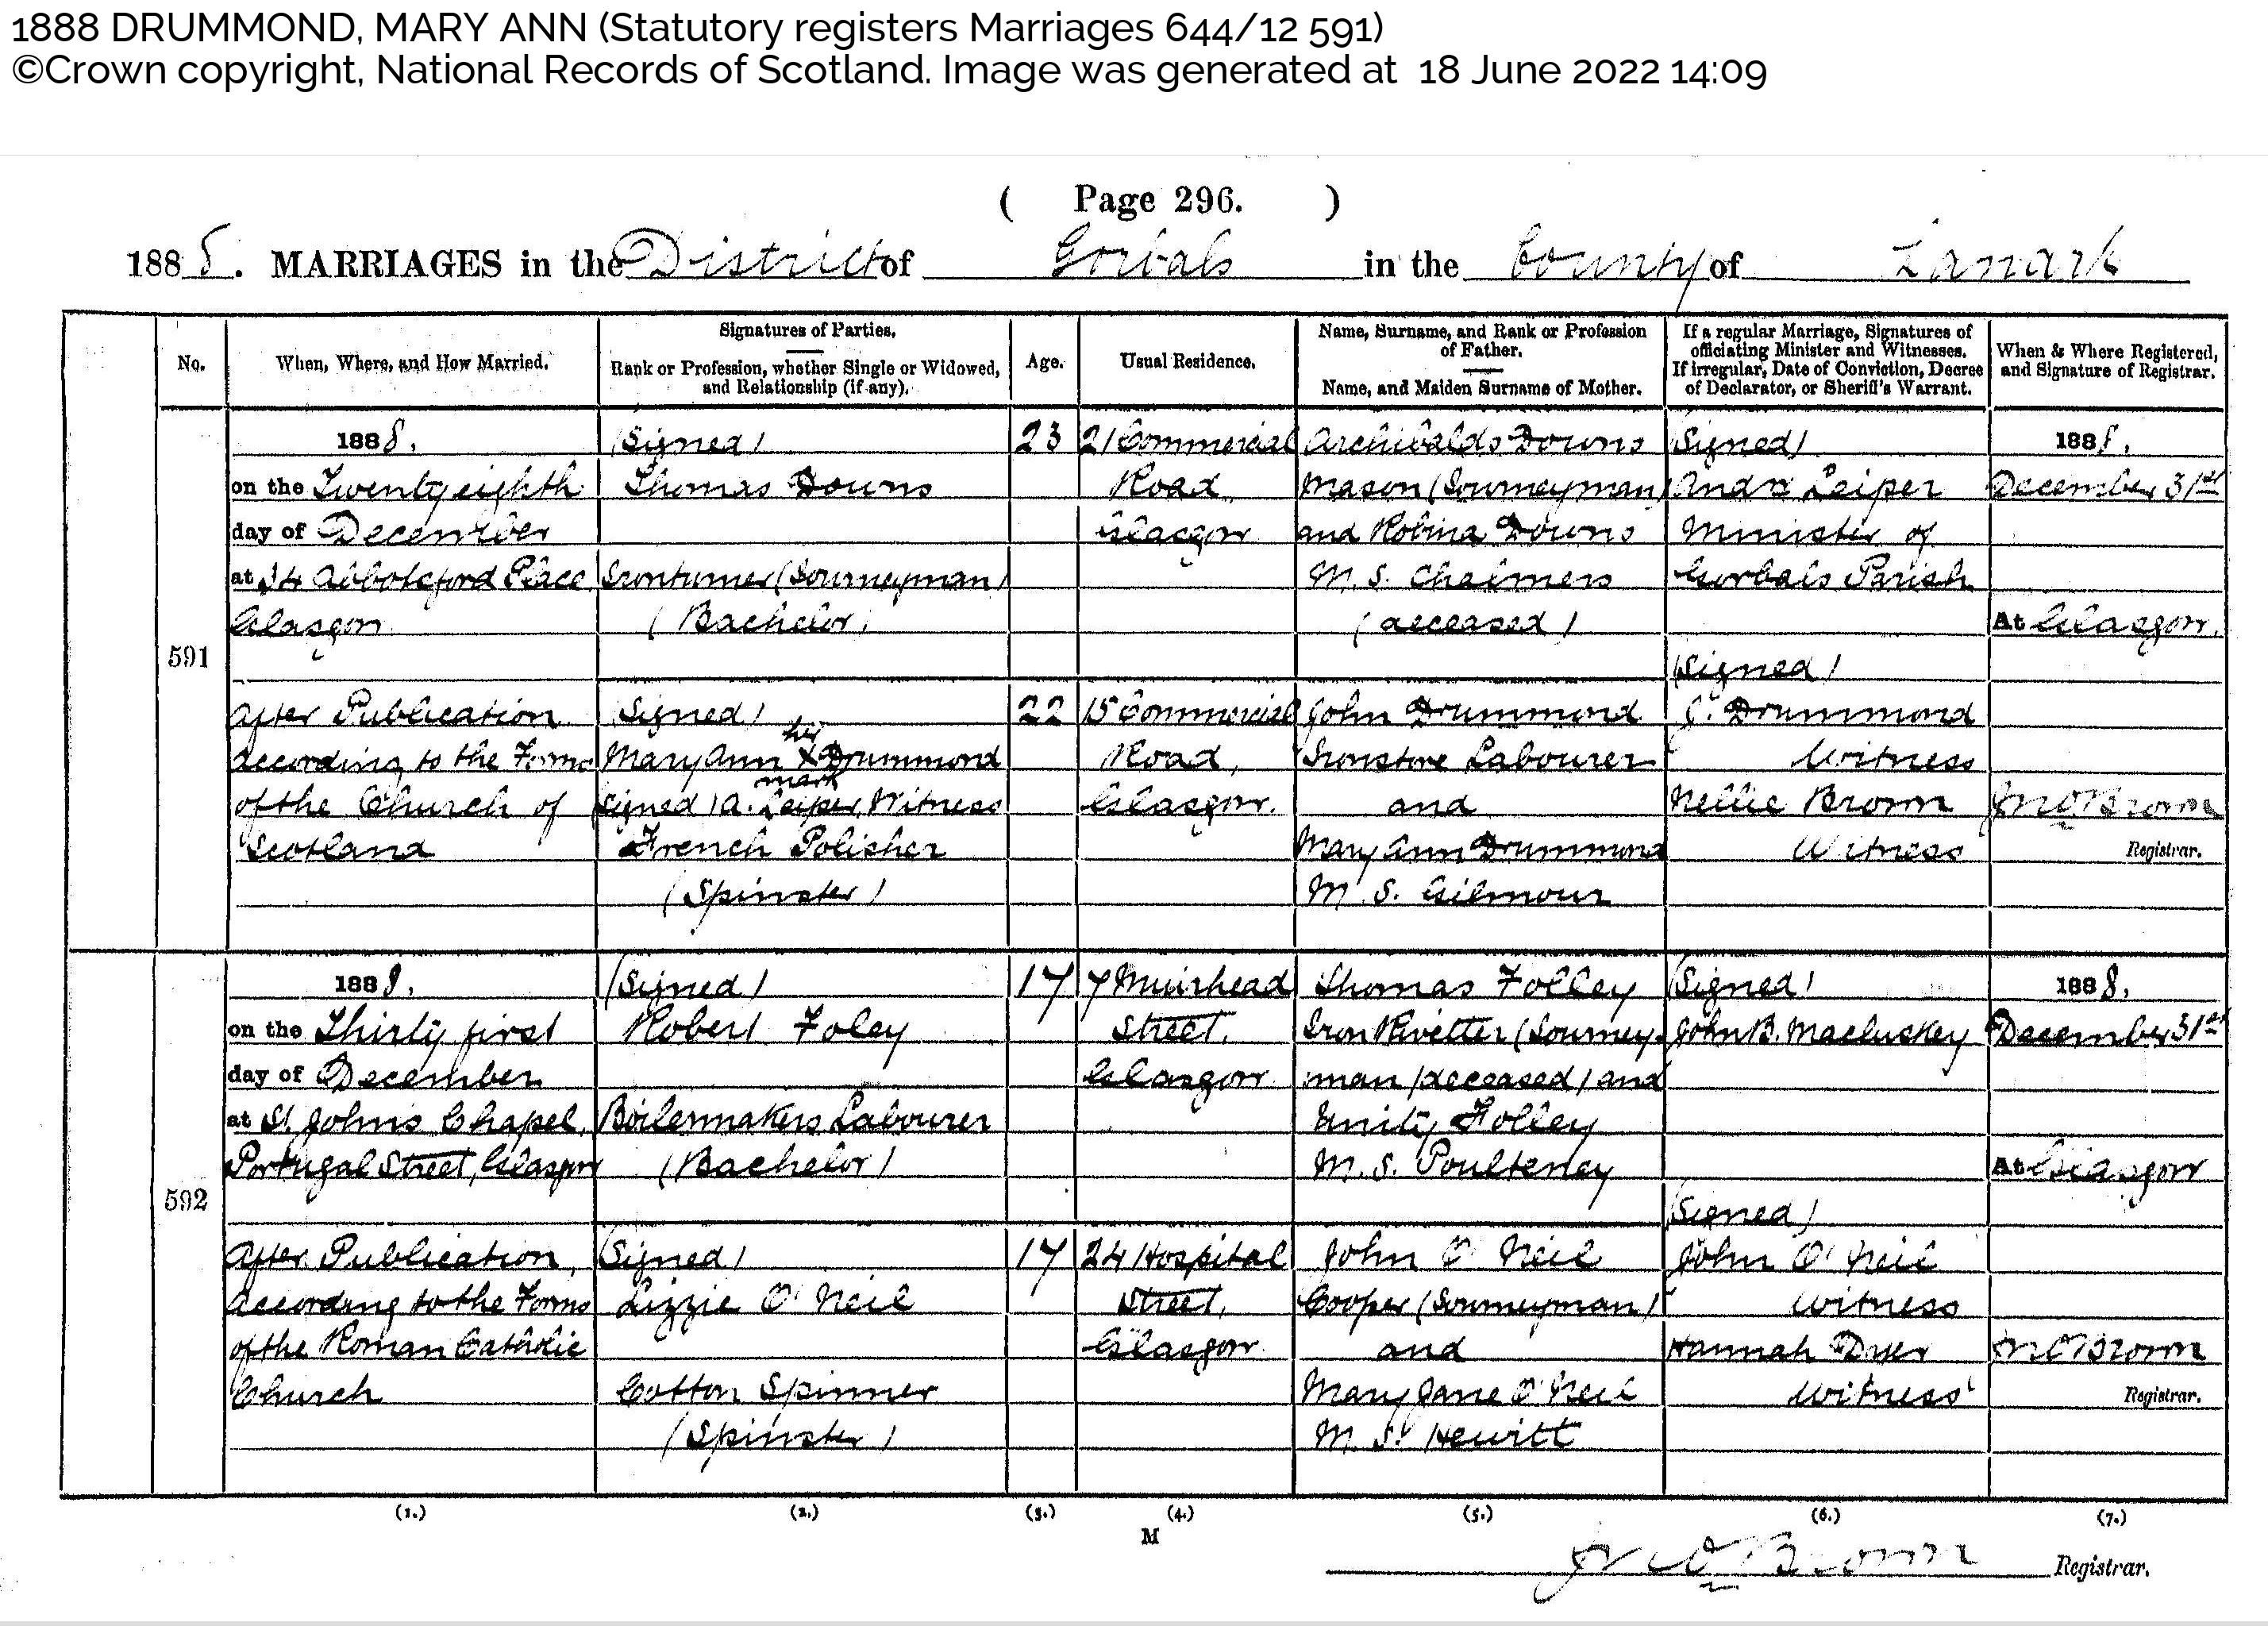 1888 DRUMMOND, MARY ANN (Statutory registers Marriages 644/12 591)
©Crown copyright, National Records of Scotland. Image was generated at 18 June 2022 14:09
( Page 296. )
1888. MARRIAGES in the District of Gorbals in the County of Lanark
No.
When, Where, and How Married.
Signatures of Parties.
Rank or Profession, whether Single or Widowed,
and Relationship (if any).
Age.
Usual Residence.
Name, Surname, and Rank or Profession
of Father.
Name, and Maiden Surname of Mother.
If a regular Marriage, Signatures of
officiating Minister and Witnesses.
If irregular, Date of Conviction, Decree
of Declarator, or Sheriff's Warrant.
When & Where Registered,
and Signature of Registrar.
591
1888.
on the Twenty eighth
day of December
at 34 Abbotsford Place
Glasgow
After Publication
according to the Forms
of the Church of
Scotland
(Signed)
Thomas Downs
Ironturner (Journeyman)
(Bachelor)
(Signed)
her
Mary Ann X Drummond
mark
(Signed) A. Leiper, Witness
French Polisher
(Spinster)
23
22
21 Commercial
Road
Glasgow
15 Commercial
Road,
Glasgow.
Archibald Downs
Mason (Journeyman)
and Robina Downs
M. S. Chalmers
(deceased)
John Drummond
Ironstone Labourer
and
Mary Ann Drummond
M. S. Gilmour
(Signed)
Andw Leiper
Minister of
Gorbals Parish
(Signed)
J. Drummond
Witness
Nellie Brown
Witness
1888.
December 31st
At Glasgow.
Jno Brown
Registrar.
592
1888.
on the Thirty first
day of December
at St. John's Chapel,
Portugal Street, Glasgow
After Publication,
according to the Forms
of the Roman Catholic
Church
(Signed)
Robert Foley
Boilermakers Labourer
(Bachelor)
(Signed)
Lizzie O'Neil
Cotton Spinner
(Spinster)
17
17
7 Muirhead
Street,
Glasgow
24 Hospital
Street,
Glasgow
Thomas Folley
Iron Rivetter (Journey-
man) (deceased) and
Unity Folley
M. S. Poulteney
John O'Neil
Cooper (Journeyman)
and
Mary Jane O'Neil
M. S. Hewitt
(Signed)
John B. Macluskey
(Signed)
John O'Neil
Witness
Hannah Dyer
Witness
1888.
December 31st
At Glasgow
Jno Brown
Registrar.
(1.) (2.) (3.) (4.) (5.) (6.) (7.)
M
Jno Brown Registrar.